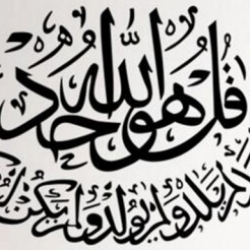 قُلْ هُوَ اللّٰهُ أَحَدٌ
لم يلد ولم يولد ولم يكن